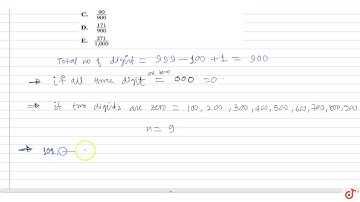 C. 90/900
D. 171/900
E. 271/1,000
Total no of digit = 999 - 100 + 1 = 900
⇒ if all three digit are zero = 000 = 0
⇒ if two digits are zero = 100, 200, 300, 400, 500, 600, 700, 800, 900
n = 9
⇒ 101,